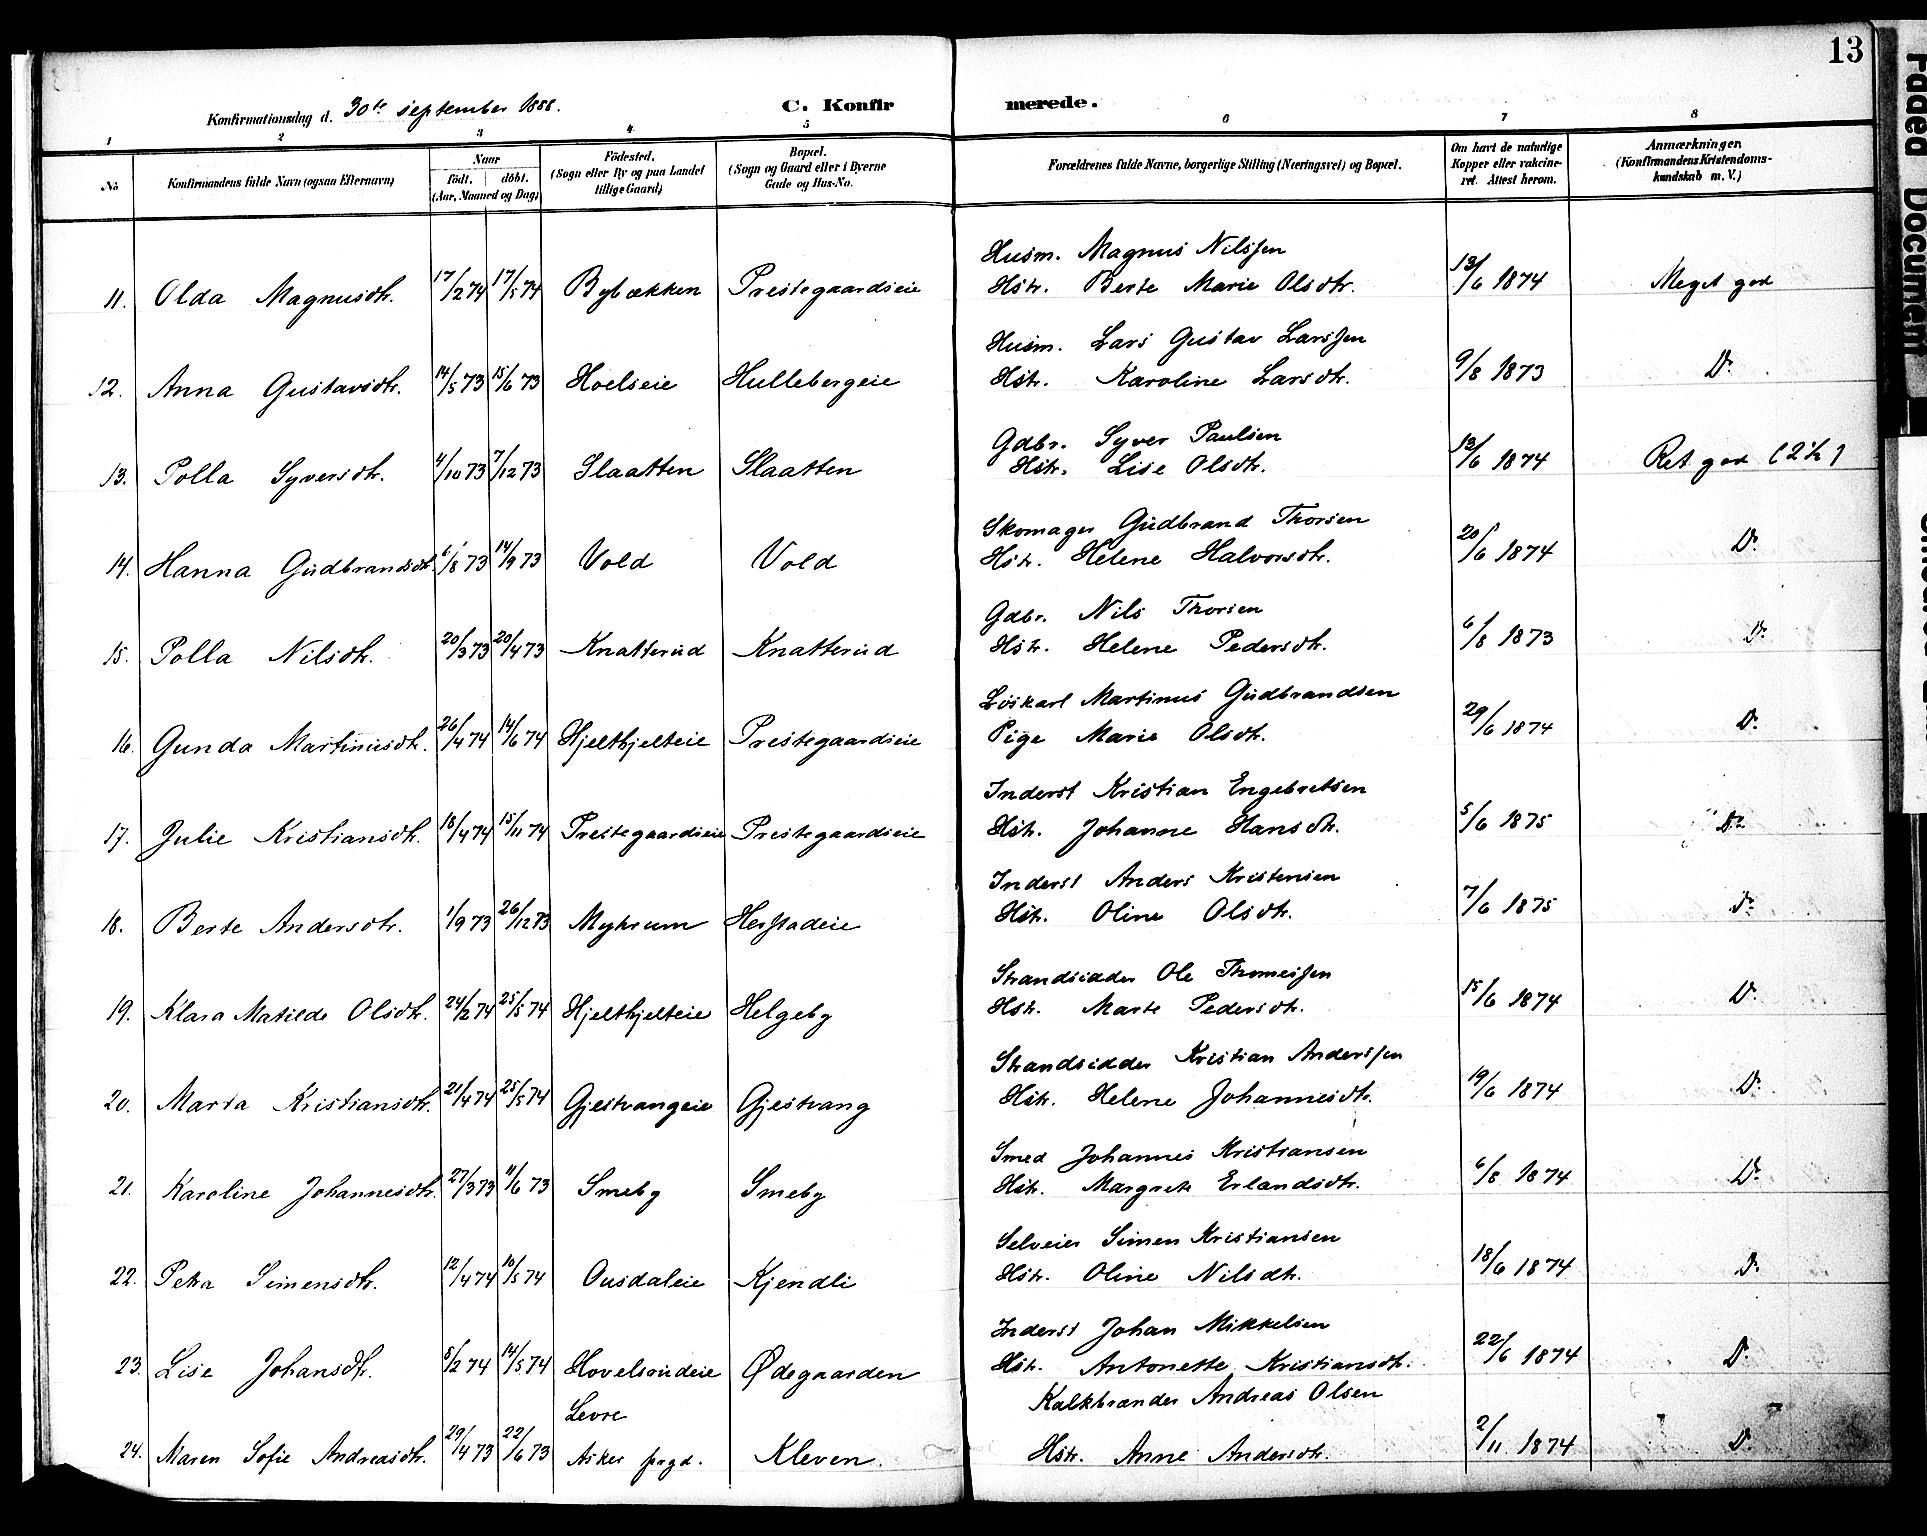 13
Konfirmationsdag d. 30te september 1888.
C. Konfirmerede.
1 2 3 4 5 6 7 8
No
Konfirmandens fulde Navn (ogsaa Efternavn)
Naar
födt. döbt.
(Aar, Maaned og Dag)
Födested.
(Sogn eller By og paa Landet
tillige Gaard)
Bopæl.
(Sogn og Gaard eller i Byerne
Gade og Hus-No.
Forældrenes fulde Navne, borgerlige Stilling (Næringsvei) og Bopæl.
Om havt de naturlige
Kopper eller vakcine-
ret. Attest herom.
Anmærkninger.
(Konfirmandens Kristendoms-
kundskab m. V.)
Husm. Magnus Nilssen
11. Olda Magnusdtr. 17/2 74 17/5 74 Bybækken Prestegaardseie Hstr. Berte Marie Olsdtr. 13/6 1874 Meget god
Husm. Lars Gustav Larssen
12. Anna Gustavsdtr. 14/5 73 15/6 73 Hoelseie Hullebergeie Hstr. Karoline Larsdtr. 9/8 1873 Do
Gdbr. Syver Paulsen
13. Polla Syversdtr. 4/10 73 7/12 73 Slaatten Slaatten Hstr. Lise Olsdtr. 13/6 1874 Ret god (2½)
Skomager Gudbrand Thorsen
14. Hanna Gudbrandsdtr. 6/8 73 14/9 73 Vold Vold Hstr. Helene Halvorsdtr. 20/6 1874 Do
Gdbr. Nils Thorsen
15. Polla Nilsdtr. 20/3 73 20/4 73 Knatterud Knatterud Hstr. Helene Pedersdtr. 6/8 1873 Do
Löskarl Martinus Gudbrandsen
16. Gunda Martinusdtr. 26/4 74 14/6 74 Hjelthjelteie Prestegaardseie Pige Marie Olsdtr. 29/6 1874 Do
Inderst Kristian Engebretsen
17. Julie Kristiansdtr. 18/4 74 15/11 74 Prestegaardseie Prestegaardseie Hstr. Johanne Hansdtr. 5/6 1875 Do
Inderst Anders Kristensen
18. Berte Andersdtr. 1/9 73 26/12 73 Myhrum Herstadeie Hstr. Oline Olsdtr. 7/6 1875 Do
Strandsidder Ole Thomessen
19. Klara Matilde Olsdtr. 24/2 74 25/5 74 Hjelthjelteie Helgeby Hstr. Marte Pedersdtr. 15/6 1874 Do
Strandsidder Kristian Anderssen
20. Marta Kristiansdtr. 21/4 74 25/5 74 Gjestvangeie Gjestvang Hstr. Helene Johannesdtr. 19/6 1874 Do
Smed Johannes Kristiansen
21. Karoline Johannesdtr. 27/3 73 11/6 73 Smeby Smeby Hstr. Margrete Erlandsdtr. 6/8 1874 Do
Selveier Simen Kristiansen
22. Petra Simensdtr. 12/4 74 10/5 74 Ousdaleie Kjendli Hstr. Oline Nilsdtr. 18/6 1874 Do
Inderst Johan Mikkelsen
23. Lise Johansdtr. 5/2 74 14/5 74 Hovelsrudeie Ødegaarden Hstr. Antonette Kristiansdtr. 22/6 1874 Do
Levre Kalkbrænder Andreas Olsen
24. Maren Sofie Andreasdtr. 29/4 73 22/6 73 Asker prgd. Kleven. Hstr. Anne Andersdtr. 2/11 1874 Do